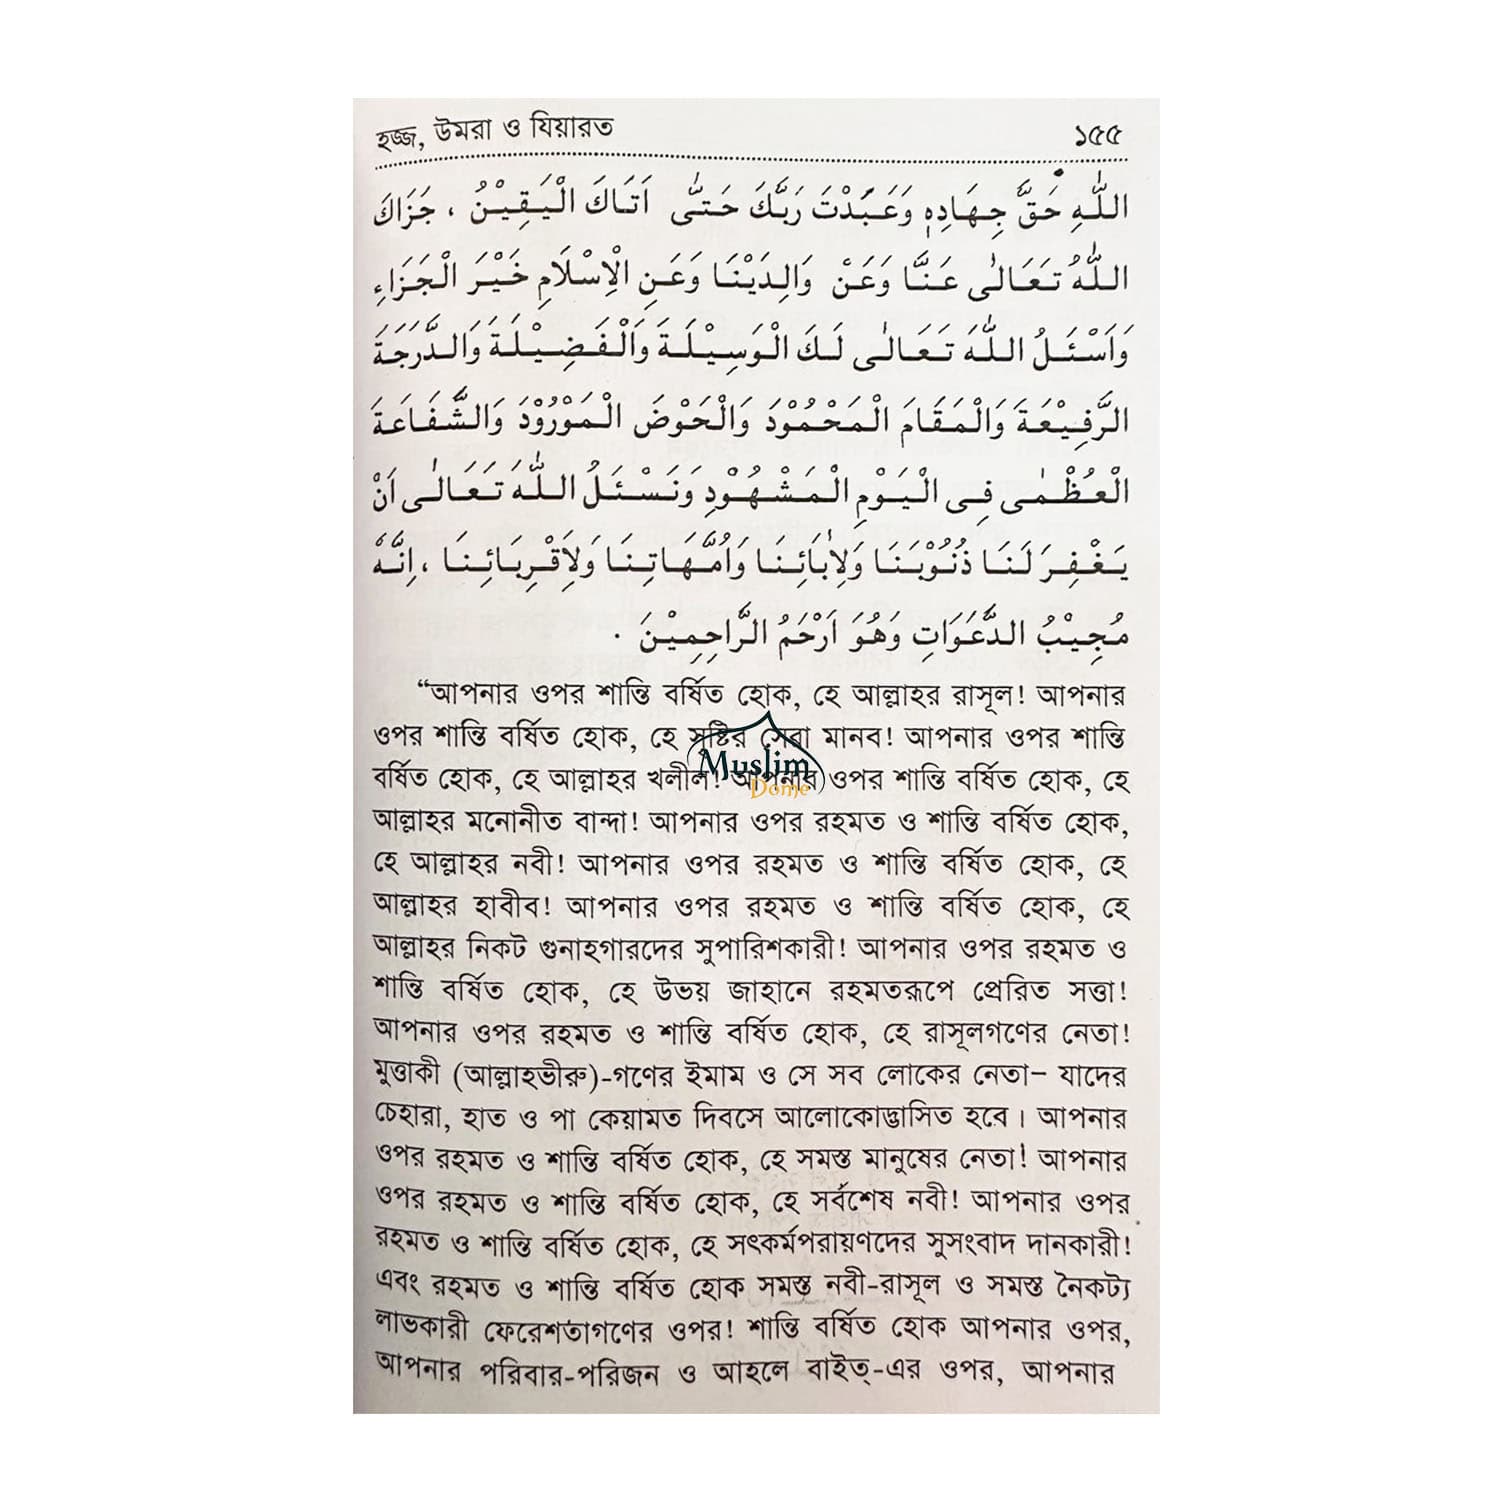 হজ্জ, উমরা ও যিয়ারত ১৫৫
اللّٰهِ حَقَّ جِهَادِهٖ وَعَبَدْتَ رَبَّكَ حَتّٰى اَتَاكَ الْيَقِيْنُ ، جَزَاكَ
اللّٰهُ تَعَالٰى عَنَّا وَعَنْ وَالِدَيْنَا وَعَنِ الْاِسْلَامِ خَيْرَ الْجَزَاءِ
وَاَسْئَلُ اللّٰهَ تَعَالٰى لَكَ الْوَسِيْلَةَ وَالْفَضِيْلَةَ وَالدَّرَجَةَ
الرَّفِيْعَةَ وَالْمَقَامَ الْمَحْمُوْدَ وَالْحَوْضَ الْمَوْرُوْدَ وَالشَّفَاعَةَ
الْعُظْمٰى فِى الْيَوْمِ الْمَشْهُوْدِ وَنَسْئَلُ اللّٰهَ تَعَالٰى اَنْ
يَغْفِرَ لَنَا ذُنُوْبَنَا وَلِاٰبَائِنَا وَاُمَّهَاتِنَا وَلِاَقْرِبَائِنَا ، اِنَّهٗ
مُجِيْبُ الدَّعَوَاتِ وَهُوَ اَرْحَمُ الرَّاحِمِيْنَ ·
“আপনার ওপর শান্তি বর্ষিত হোক, হে আল্লাহর রাসূল! আপনার
ওপর শান্তি বর্ষিত হোক, হে সৃষ্টির সেরা মানব! আপনার ওপর শান্তি
বর্ষিত হোক, হে আল্লাহর খলীল! আপনার ওপর শান্তি বর্ষিত হোক, হে
আল্লাহর মনোনীত বান্দা! আপনার ওপর রহমত ও শান্তি বর্ষিত হোক,
হে আল্লাহর নবী! আপনার ওপর রহমত ও শান্তি বর্ষিত হোক, হে
আল্লাহর হাবীব! আপনার ওপর রহমত ও শান্তি বর্ষিত হোক, হে
আল্লাহর নিকট গুনাহগারদের সুপারিশকারী! আপনার ওপর রহমত ও
শান্তি বর্ষিত হোক, হে উভয় জাহানে রহমতরূপে প্রেরিত সত্তা!
আপনার ওপর রহমত ও শান্তি বর্ষিত হোক, হে রাসূলগণের নেতা!
মুত্তাকী (আল্লাহভীরু)-গণের ইমাম ও সে সব লোকের নেতা– যাদের
চেহারা, হাত ও পা কেয়ামত দিবসে আলোকোদ্ভাসিত হবে। আপনার
ওপর রহমত ও শান্তি বর্ষিত হোক, হে সমস্ত মানুষের নেতা! আপনার
ওপর রহমত ও শান্তি বর্ষিত হোক, হে সর্বশেষ নবী! আপনার ওপর
রহমত ও শান্তি বর্ষিত হোক, হে সৎকর্মপরায়ণদের সুসংবাদ দানকারী!
এবং রহমত ও শান্তি বর্ষিত হোক সমস্ত নবী-রাসূল ও সমস্ত নৈকট্য
লাভকারী ফেরেশতাগণের ওপর! শান্তি বর্ষিত হোক আপনার ওপর,
আপনার পরিবার-পরিজন ও আহলে বাইত্-এর ওপর, আপনার
Muslim
Dome